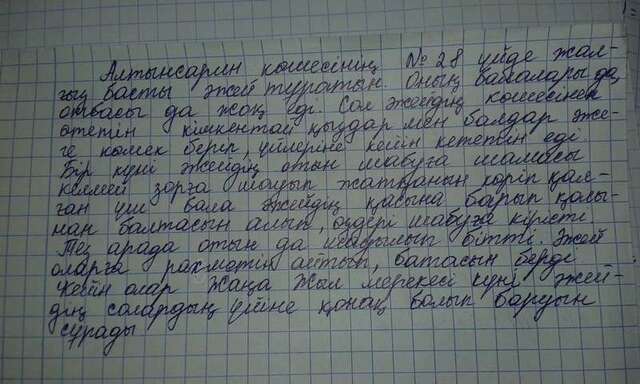 Алтынсарин көшесінің №28 үйде жал-
ғыз басты әжей тұратын. Оның балалары да,
отбасы да жоқ еді. Сол әжейдің көшесінен
өтетін кішкентай қыздар мен балдар әже-
ге көмек беріп, үйлеріне кейін кететін еді.
Бір күні әжейдің отын шабуға шамасы
келмей зорға шауып жатқанын көріп қал-
ған үш бала әжейдің қасына барып қолы-
нан балтасын алып, өздері шабуға кірісті.
Тез арада отын да шабылып бітті. Әжей
оларға рахметін айтып, батасын берді
Кейін олар Жаңа Жыл мерекесі күні әжей-
дің солардың үйіне қонақ болып баруын
сұрады